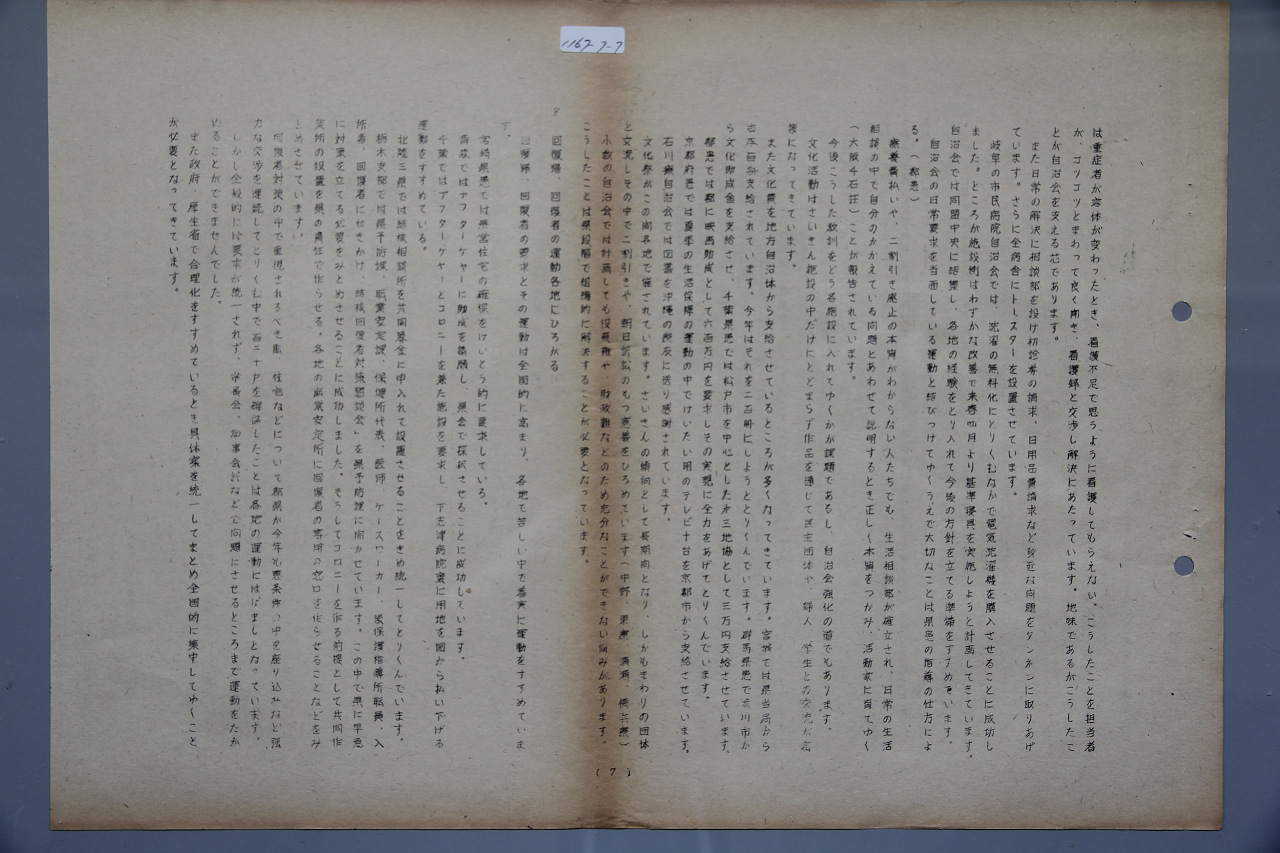 1167-7-7
は重症者が容体が変わったとき、看護不足で思うように看護してもらえない。こうしたことを担当者
が、コツコツとまわって良く聞き、看護婦と交渉し解決にあたっています。地味であるがこうしたこ
とが自治会を支える芯であります。
また日常の解決に相談部を設け初診券の請求、日用品費請求など身近な問題をタンネンに取りあげ
ています。さらに全病舎にトースターを設置させています。
岐阜の市民病院自治会では、洗濯の無料化にとりくむなかで電気洗濯機を購入させることに成功し
ました。ところが施設側はわずかな改善で来春四月より基準寝具を実施しようと計画してきています。
自治会では同盟中央に結集し、各地の経験をとり入れて今後の方針を立てる準備をすすめています。
自治会の日常要求を当面している運動と結びつけてゆくうえで大切なことは県患の指導の仕方によ
る。（都患）
療養費払いや、二割引き廃止の本質がわからない人たちでも、生活相談部が確立され、日常の生活
相談の中で自分のかかえている問題とあわせて説明するとき正しく本質をつかみ、活動家に育てゆく
（大阪千石荘）ことが報告されています。
今後こうした教訓をどう各施設に入れてゆくかが課題であるし、自治会強化の道でもあります。
文化活動はさいきん施設の中だけにとどまらず作品を通じて民主団体や、婦人、学生との交流が盛
様になってきています。
また文化費を地方自治体から支給させているところが多くなってきています。宮城では県当局から
図書百冊支給されています。今年はそれを二百冊にしようととりくんでいます。群馬県患で渋川市か
ら文化助成金を支給させ、千葉県患では松戸市を中心とした永三地協として三万円支給させています。
都患では都に映画助成として六百万円を要求しその実現に全力をあげてとりくんでいます。
京都府患では夏季の生活保障の運動の中でけいたい用のテレビ十台を京都市から支給させています。
石川療自治会では図書を沖縄の療友に送り感謝されています。
文化祭がこの間各地で催されています。さいきんの傾向として長期間となり、しかもまわりの団体
と交流しその中で二割引きや、朝日訴訟のもつ意義をひろめています（中野、東療、清瀬、横浜療）
小数の自治会では計画しても役員難や、財政難などのため充分なことができない悩みがあります。
こうしたことは県段階で組織的に解決することが必要となっています。
8　回復場、回復者の運動各地にひろがる
回復場、回復者の要求とその運動は全国的に高まり、各地で苦しい中で着実に運動をすすめていま
す。
宮崎県患では県営住宅の確保をけいとう的に要求している。
香成ではアフターケヤーに助成を請願し、県会で採択させることに成功しています。
千葉ではアフターケヤーとコロニーを兼た施設を要求し、下志津病院裏に用地を国から払い下げる
運動をすすめている。
北陸三県では結核相談所を共同募金に申入れて設置させることをきめ統一してとりくんでいます。
栃木支部では県予防課、職業安定課、保健所代表、医師、ケースワーカー、後保護指導所職員、入
所者、回復者に働きかけ、「結核回復者対策懇談会」を県予防課に開かせています。この中で県に早急
に対策を立てる必要をみとめさせることに成功しました。そうしてコロニーを作る前提として共同作
業所の設置を県の責任で作らせる。各地の職業安定所に回復者の専用の窓口を作らせることなどをみ
とめさせています。
回復者対策の中で重視されるべき職、住宅などについて都県が今年も悪条件の中を座り込みなど強
力な交渉を連続してとりくむ中で百二十戸を確保したことは各地の運動にはげましとなっています。
しかし全般的には要求が統一されず、市長会、知事会議などで問題にさせるところまで運動をたか
めることができませんでした。
また政府、厚生省で合理化をすすめているとき具体案を統一してまとめ全国的に集中してゆくこと
が必要となってきています。
（7）